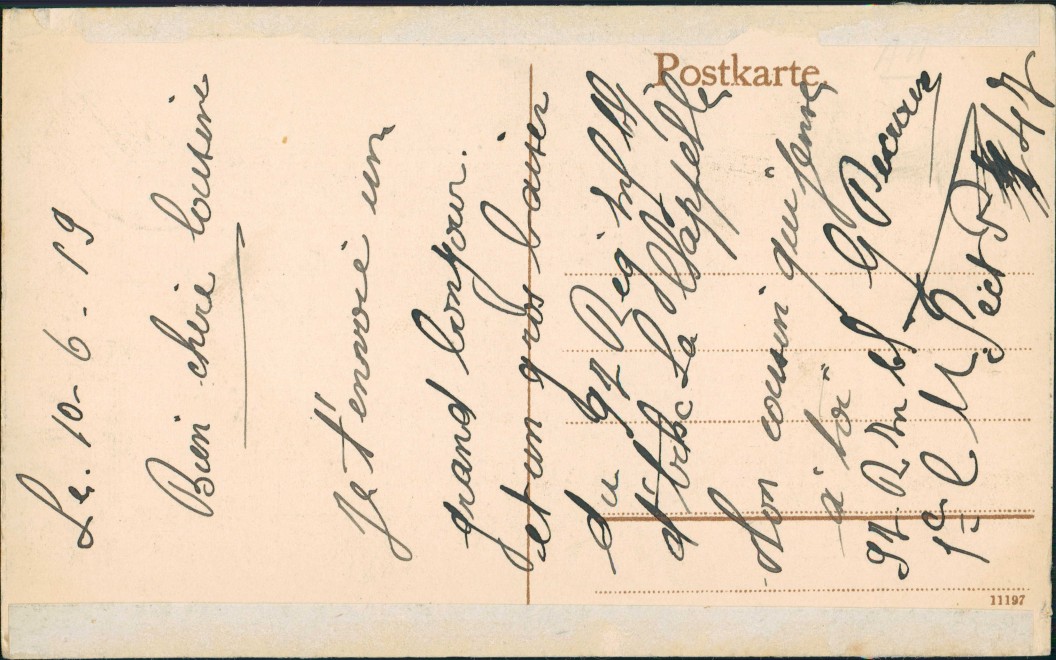 Postkarte
Le. 10-6-19
Bien chère cousine
Je t'envoie un
grand bonjour.
et un gros baiser
du 92 Reg inf
d'Aix La Chapelle
Ton cousin qui pense
à toi
G
92 R Inf
1e C M Sect P 47
11197